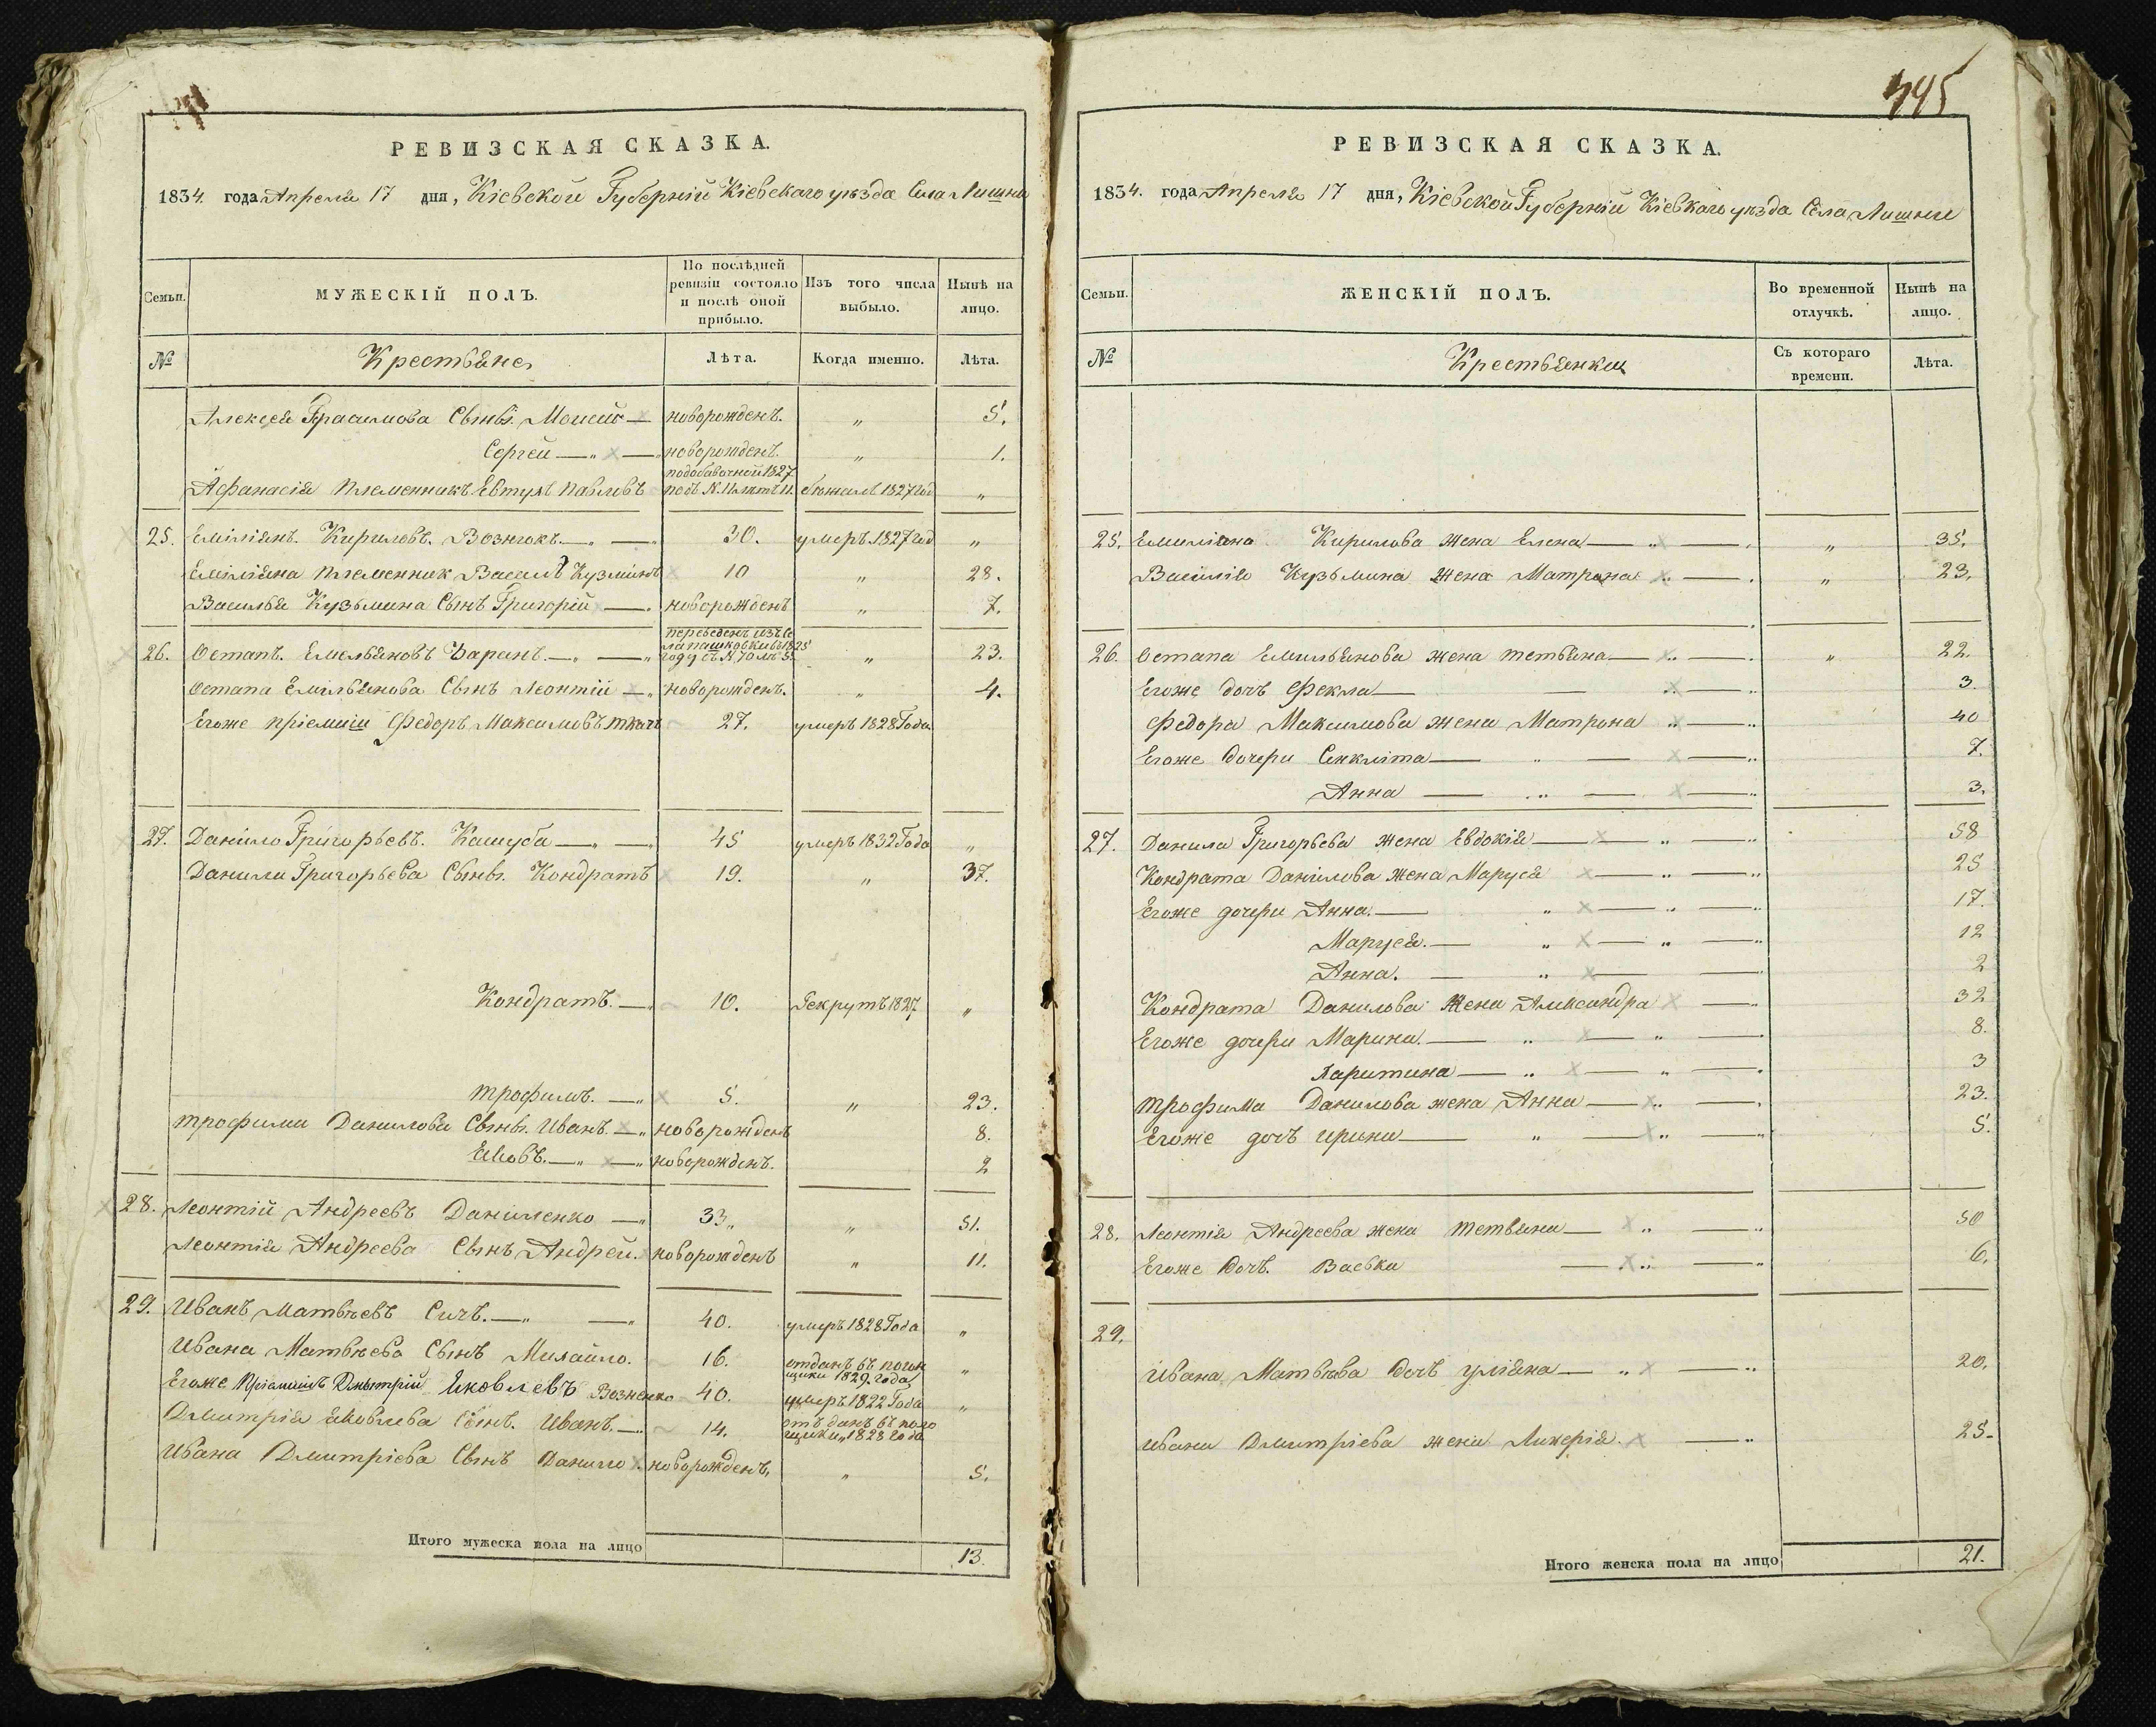 РЕВИЗСКАЯ СКАЗКА.
1834. года Апреля 17 дня, Кіевской Губерніи Кіевскаго уѣзда Села Лишни
Семьи.
МУЖЕСКІЙ ПОЛЪ.
По послѣдней ревизіи состояло и послѣ оной прибыло.
Изъ того числа выбыло.
Нынѣ на лицо.
№
Крестьяне
Лѣта.
Когда именно.
Лѣта.
Алексея Герасимова Сынъ. Моисей — новорожденъ. „ 5.
Сергей — „ — новорожденъ. „ 1.
подобавочной 1827
Афанасія племенникъ Евтухъ Павловъ подъ N. 1827 год „
25. Емиліянъ. Кириловъ. Вознюкъ. — „ — 30. умеръ 1827 год „
Емиліяна племенник Василь Кузминъ 10 „ 28.
Василья Кузьмина Сынъ Григорій — новорожденъ „ 7.
переведенъ изъ се
ла пашковки въ 1825
26. Остапъ. Емельяновъ Баранъ. — „ — году съ N. 70 „ 23.
Остапа Емильянова Сынъ Леонтій — „ новорожденъ. „ 4.
Егоже пріемиш Федоръ Максимовъ ткачъ 27. умеръ 1828 Года.
27. Данило Григорьевъ. Кашуба — „ — 45 умеръ 1832 Года „
Данили Григорьева Сынъ. Кондратъ 19. „ 37.
Кондратъ. — 10. Рекрутъ 1827 „
трофимъ. — „ 5. „ 23.
трофима Данилова Сынъ. Иванъ. — „ новорожденъ 8.
Яковъ. — „ — „ новорожденъ. 2
28. Леонтій Андреевъ Даниленко — „ 33 „ „ 51.
Леонтія Андреева Сынъ Андрей. новорожденъ „ 11.
29. Иванъ Матвѣевъ Сичъ. — „ — „ 40. умеръ 1828 Года „
Ивана Матвѣева Сынъ Михайло. 16. отданъ въ погон
щики 1829. года „
Егоже Пріемишъ Дмытрій Яковлевъ Возненко 40. умеръ 1822 Года „
Дмитрія Яковлева Сынъ. Иванъ. — 14. отъданъ въ пого
щики „ 1828 года
Ивана Дмитріева Сынъ Данило новорожденъ, „ 5.
Итого мужеска пола на лицо 13.
РЕВИЗСКАЯ СКАЗКА.
1834. года Апреля 17 дня, Кіевской Губерніи Кіевкаго уѣзда Села Лишни
Семьи.
ЖЕНСКІЙ ПОЛЪ.
Во временной отлучкѣ.
Нынѣ на лицо.
№
Крестьянки
Съ котораго времени.
Лѣта.
25. Емилияна Кирилова жена Елена — „ — „ 35.
Василія Кузьмина жена Матрона „ — „ 23.
26. Остапа Емильянова жена тетьяна — „ — „ 22.
Егоже дочъ Фекла — — „ — 3.
Федора Максимова жена Матрона „ — „ 40
Егоже дочери Синклита — „ — — „ 7.
Анна — „ — — „ 3.
27. Данила Григорьева жена Евдокія — „ — „ 58
Кондрата Данилова жена Маруся — „ — „ 25
Егоже дочери Анна. — „ — „ — „ 17.
Маруся. — „ — „ — „ 12
Анна. — „ — — „ 2
Кондрата Данилова жена Александра — „ 32
Егоже дочери Марина. — „ — „ — 8.
Харитина — „ — „ — 3
Трофима Данилова жена Анна — „ — 23.
Егоже дочъ Ирина — „ — „ — „ 5.
28. Леонтія Андреева жена тетьяна — „ — „ 50
Егоже дочъ. Васька — „ — „ 6.
29.
Ивана Матвѣева дочъ уліяна — „ — „ 20.
Ивана Дмитріева жена Ликерія. — „ 25.
Итого женска пола на лицо 21.